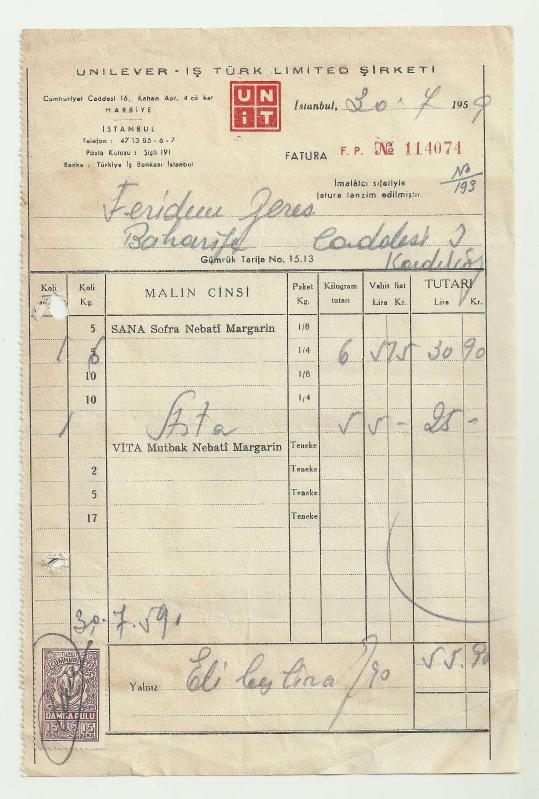 UNILEVER - İŞ TÜRK LIMITED ŞİRKETİ
Cumhuriyet Caddesi 16, Kahan Apt, 4 cü kat
HARBİYE
İSTANBUL
Telefon : 47 13 85 - 6 - 7
Posta Kutusu : Şişli 191
Banka : Türkiye İş Bankası İstanbul
UNİT
İstanbul, 30 - 7 1959
FATURA F. P. № 114074
İmalâtçı sıfatiyle
fatura tanzim edilmiştir.
No 193
Feridun
Caddesi
Gümrük Tarife No. 15.13
Koli Koli Kg. MALIN CİNSİ Paket Kg. Kilogram tutarı Vahit fiat Lira Kr. TUTARI Lira Kr.
5 SANA Sofra Nebatî Margarin 1/8
1 1/4 6 515 30 90
10 1/8
10 1/4
1 5 5 - 25 -
VİTA Mutbak Nebatî Margarin Teneke
2 Teneke
5 Teneke
17 Teneke
30.7.59
Yalnız Eli beş lira /90 55.90
DAMGA PULU
15 15